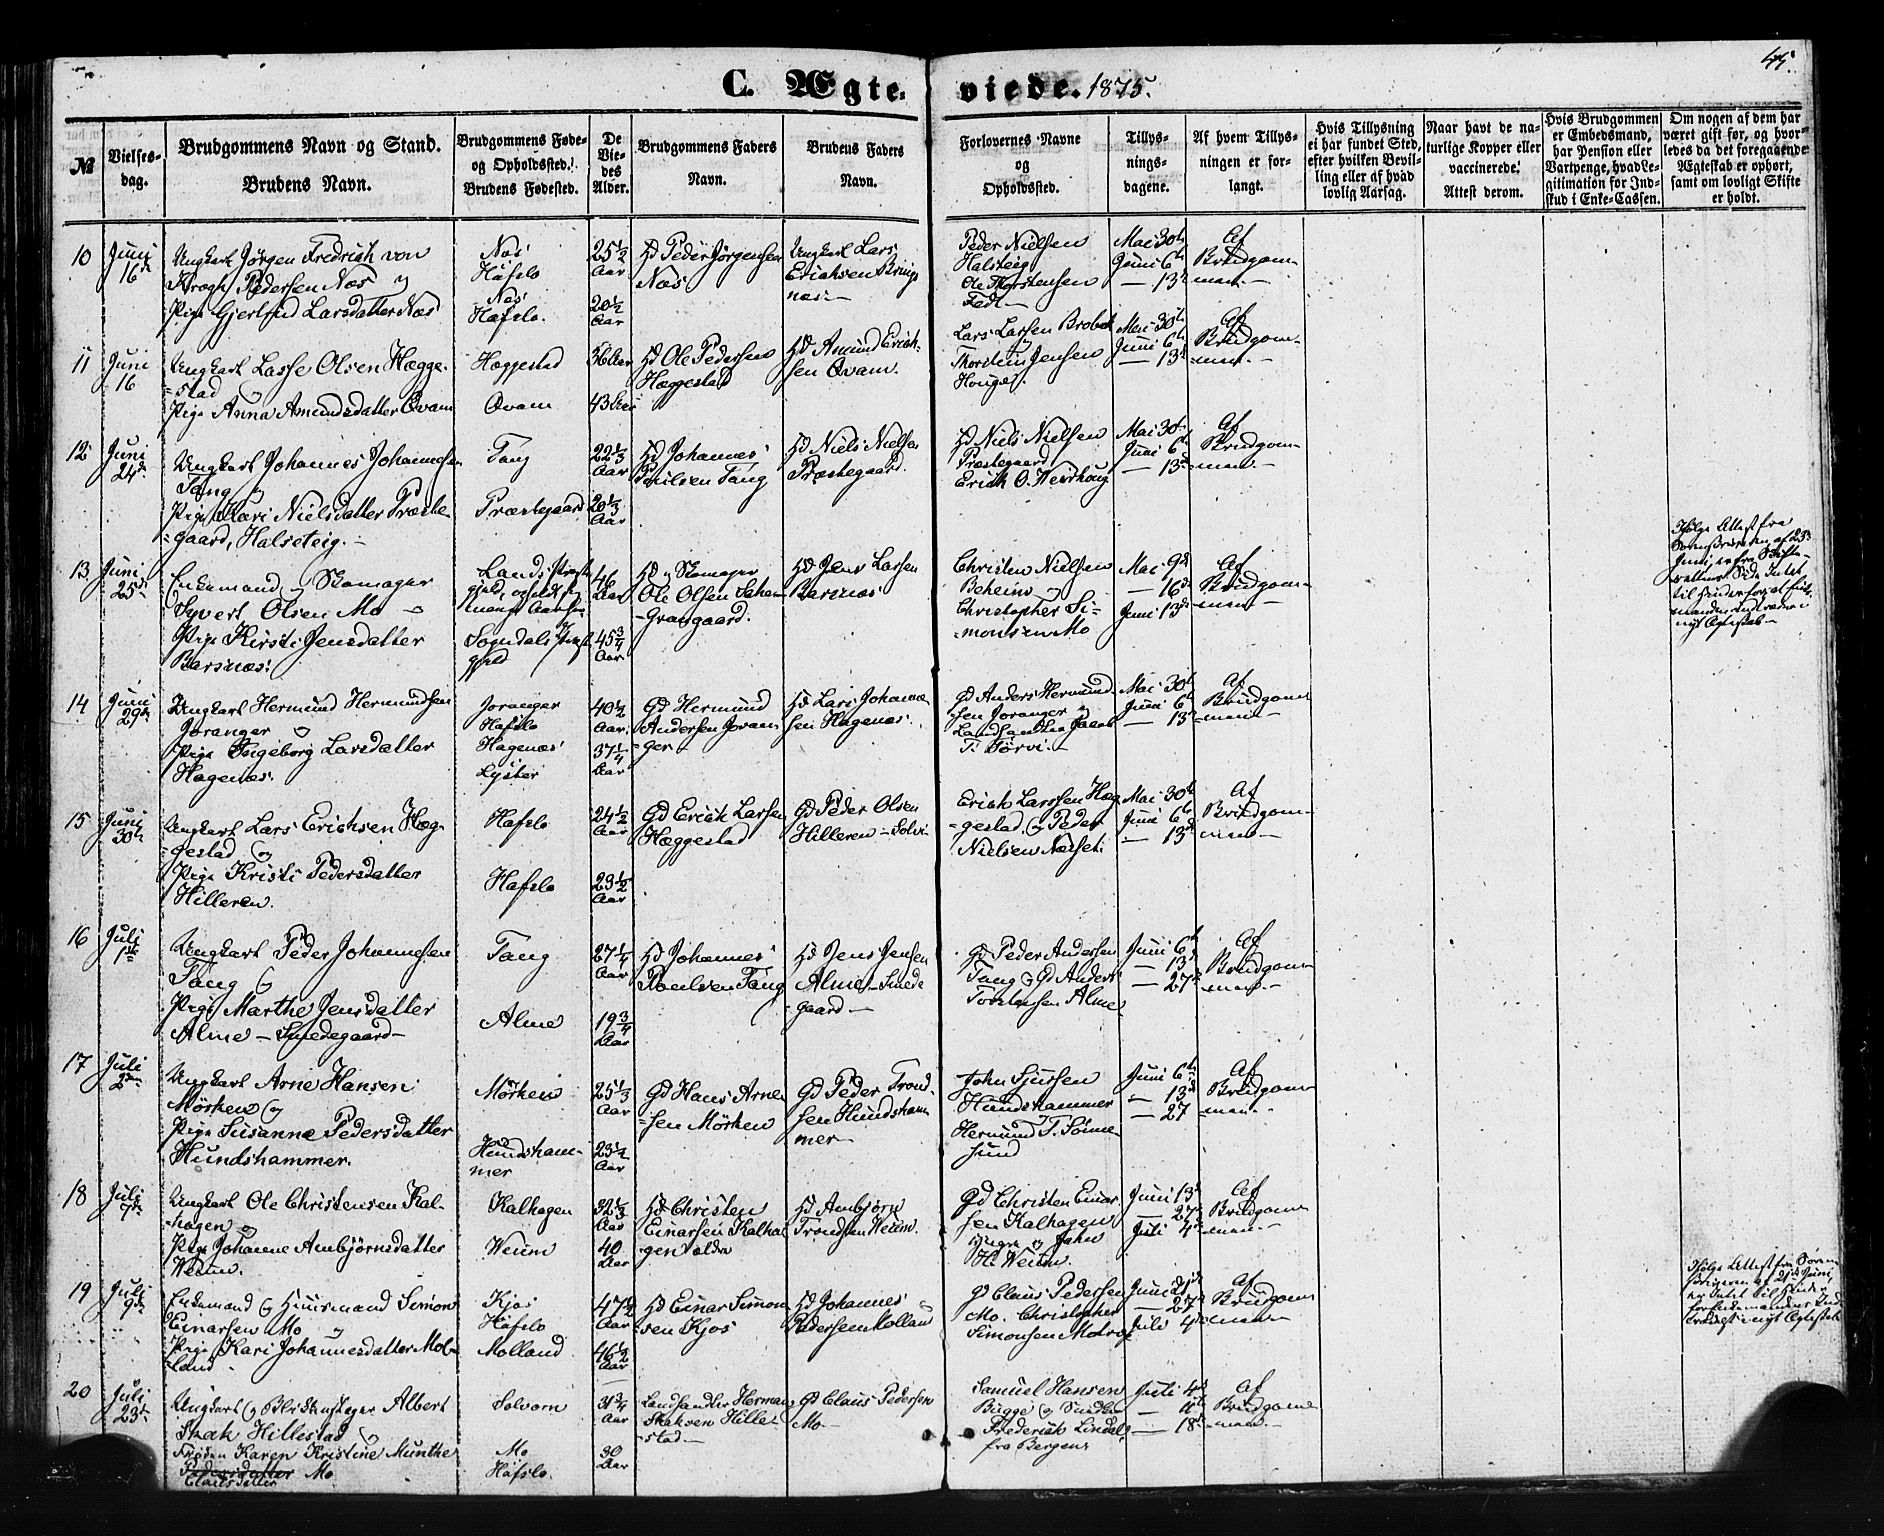 45.
C. Ægte- viede. 1875.
№
Vielses-
dag.
Brudgommens Navn og Stand.
Brudens Navn.
Brudgommens Føde-
og Opholdssted.
Brudens Fødested.
De
Vie-
des
Alder.
Brudgommens Faders
Navn.
Brudens Faders
Navn.
Forlovernes Navne
og
Opholdssted.
Tillys-
nings-
dagene.
Af hvem Tillys-
ningen er for-
langt.
Hvis Tillysning
ei har fundet Sted,
efter hvilken Bevil-
ling eller af hvad
lovlig Aarsag.
Naar havt de na-
turlige Kopper eller
vaccinerede.
Attest derom.
Hvis Brudgommen
er Embedsmand,
har Pension eller
Vartpenge, hvad Le-
gitimation for Ind-
skud i Enke-Cassen.
Om nogen af dem har
været gift før, og hvor-
ledes da det foregaaende
Ægteskab er ophørt,
samt om lovligt Skifte
er holdt.
10
Juni
16de
Ungkarl Jörgen Fredrich von
Krogh Pedersen Næs og
Pige Gjertrud Larsdatter Næs
Næs
Hafslo
Næs
Hafslo.
25½
Aar
20½
Aar
Hd Peder Jörgensen
Næs
Ungkarl Lars
Erichsen Krings
næs
Peder Nielsen
Halsteig
Ole Thorstensen
Mai 30te
Juni 6te
— 13de
Af
Brudgom-
men
11
Juni
16
Ungkarl Lasse Olsen Hægge-
stad og
Pige Anna Amundsdatter Qvam
Heggestad
Qvam
36 Aar
43 Aar
Hd Ole Pedersen
Heggestad
Hd Amund Erich-
sen Qvam.
Lars Larsen
Thorstein Jensen
Mai 30te
Juni 6te
— 13de
Af
Brudgom-
men
12
Juni
24de
Ungkarl Johannes Johannesen
Tang og
Pige Kari Nielsdatter Præste-
gaard, Halseteig.
Tang
Præstegaard
22⅓
Aar
20⅓
Aar
Hd Johannes
Poulsen Tang
Hd Niels Nielsen
Præstegaard.
Hd Niels Nielsen
Præstegaard
Erich O.
Mai 30te
Juni 6te
— 13de
Af
Brudgom-
men
13
Juni
25de
Enkemand og Skomager
Syvert Olsen Mo og
Pige Kirsti Jensdatter
Barsnæs
Sogndals Præste-
gjeld
46
Aar
45¾
Aar
Hd og Skomager
Ole Olsen
Hd Jens Larsen
Barsnæs
Christen Nielsen
Beheim og
Christopher Si-
monsen Mo
Mai 9de
— 16de
Juni 13de
Af
Brudgom-
men
14
Juni
29de
Ungkarl Hermund Hermundsen
Joranger og
Pige Ingeborg Larsdatter
Hagenæs.
Joranger
Hafslo
Hagenæs
Lyster
40½
Aar.
37¼
Aar
Gd Hermund
Andersen Joran-
ger
Hd Lars Johanne-
sen Hagenæs.
Gd Anders Hermund-
sen Joranger og
Landhandler Jacob
T. Törvi.
Mai 30te
Juni 6te
— 13de
Af
Brudgom-
men
15
Juni
30te
Ungkarl Lars Erichsen Hæg-
gestad og
Pige Kristi Pedersdatter
Hilleren.
Hafslo
Hafslo
24½
Aar
23½
Aar
Gd Erich Larsen
Hæggestad
Gd Peder Olsen
Hilleren
Erich Larssen Hæg-
gestad og Peder
Nielsen
Mai 30te
Juni 6te
— 13de
Af
Brudgom-
men
16
Juli
1ste
Ungkarl Peder Johannesen
Tang og
Pige Marthe Jensdatter
Alme — Smedegaard
Tang
Alme
27¼
Aar
19¾
Aar
Hd Johannes
Poulsen Tang
Hd Jens Jensen
Alme - Smede
gaard
Gd Peder Andersen
Tang og Gd Anders
Torstensen Alme
Juni 6te
— 13de
— 27de
Af
Brudgom-
men
17
Juli
2den
Ungkarl Arne Hansen
Mörken og
Pige Susanne Pedersdatter
Hundshammer.
Mörken
Hundsham-
mer
25⅓
Aar
Aar
Gd Hans Arne-
sen Mörken
Gd Peder Trond-
sen Hundsham
mer
John Sjursen
Hundshammer
Hermund T. Sönne-
sund
Juni 6te
— 13de
— 27
Af
Brudgom-
men
18
Juli
7de
Ungkarl Ole Christensen Kal-
hagen og
Pige Johanne Ambjörnsdatter
Weum.
Kalhagen
Weum
32⅓
Aar
40
Aar
Hd Christen
Einarsen Kalha-
gen ældre
Hd Ambjörn
Trondsen Weum.
Gd Christen Einar-
sen Kalhagen
yngre og John
H. Weum.
Juni 13de
— 27de
Juli 4de
Af
Brudgom-
men
19
Juli
9de
Enkemand og Huusmand Simon
Einarsen Mo og
Pige Kari Johannesdatter Mol-
land.
Kjos
Hafslo
Molland
47½
Aar
46½
Aar
Hd Einar Simon-
sen Kjos
Hd Johannes
Pedersen Molland
Gd Claus Pedersen
Mo. Christopher
Simonsen
Juni
— 27de
Juli 4de
Af
Brudgom-
men
20
Juli
23de
Ungkarl og Blikkenslager Albert
Isak Hillestad og
Fröken Karen Kristine Munthe
Pedersdatter Mo
Clausdatter
Solvorn
Mo
Hafslo
31¾
Aar
30
Aar
Landhandler Herman
Isaksen Hille-
stad
Gd Claus Pedersen
Mo
Samuel Hansen
Bugge og
Frederich Lindal
fra Bergen
Juli 4de
— 11te
— 18de
Af
Brudgom-
men